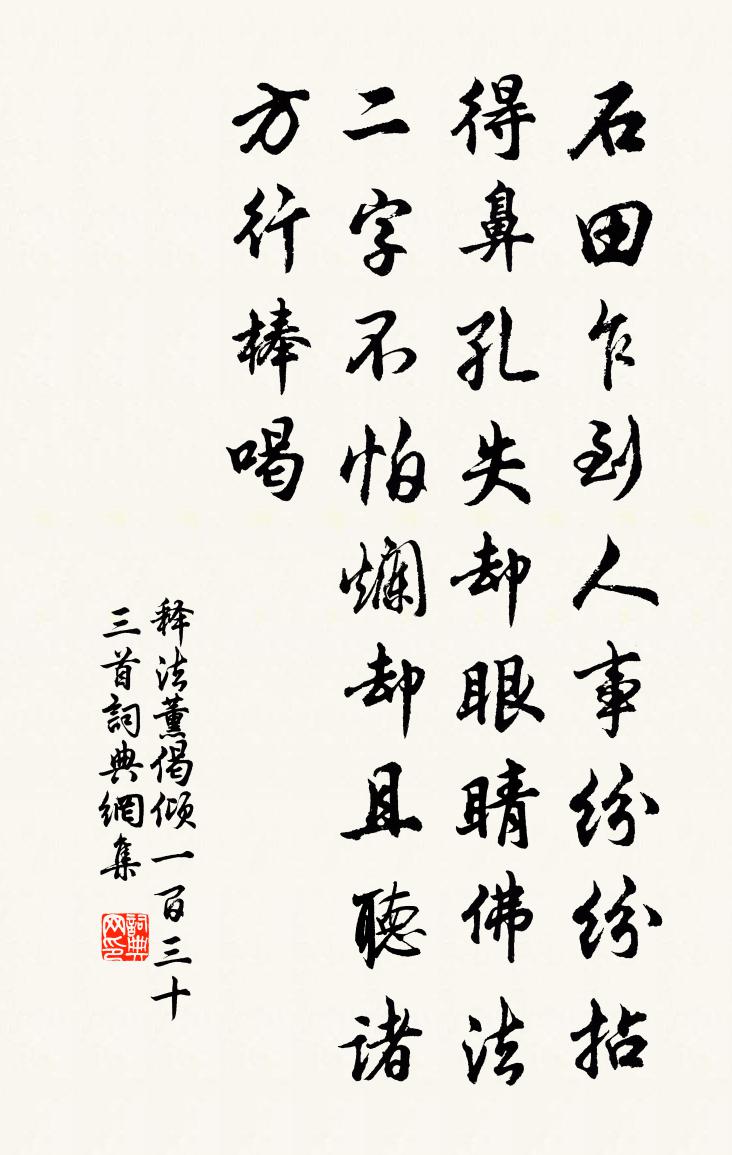 石田乍到人事纷纷拈
得鼻孔失却眼睛佛法
二字不怕爛却且聽诸
方行棒喝
释法薰偈倾一百三十
三首詞典網集
詞典网印